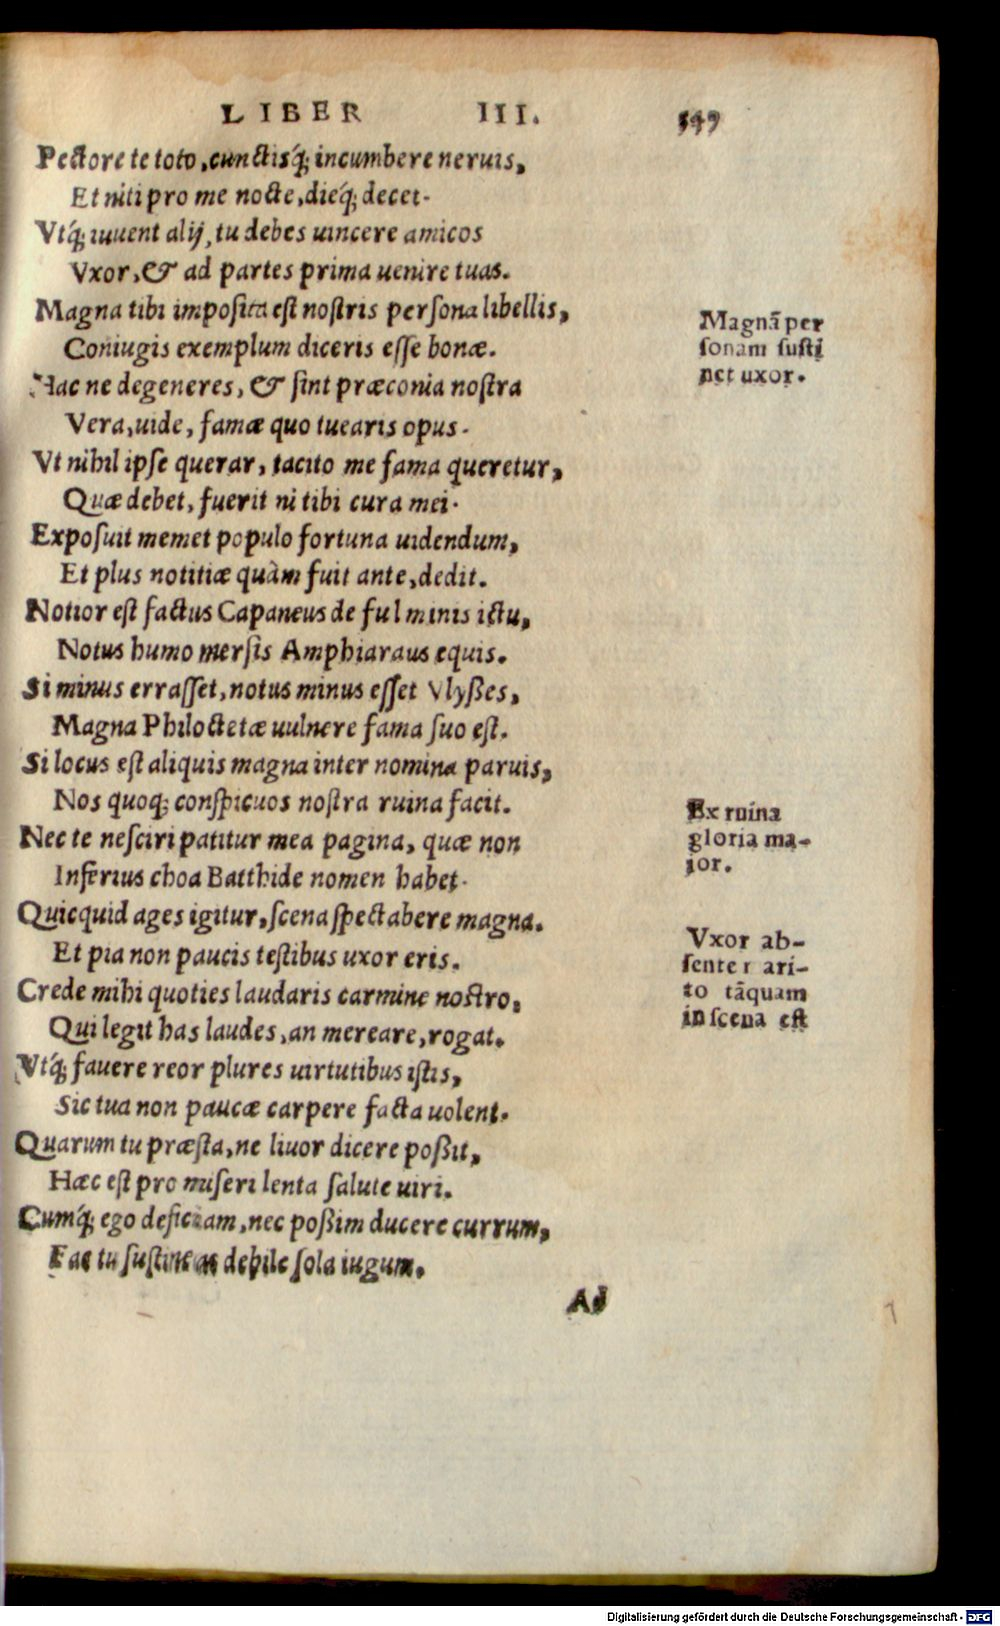 LIBER III. 349
Pectore te toto, cunctisq́; incumbere neruis,
Et niti pro me nocte, dieq́; decet.
Vtq́; iuuent alij, tu debes uincere amicos
Vxor, & ad partes prima uenire tuas.
Magna tibi imposita est nostris persona libellis,
Coniugis exemplum diceris esse bonæ.
Hac ne degeneres, & sint præconia nostra
Vera, uide, famæ quo tuearis opus.
Vt nihil ipse querar, tacito me fama queretur,
Quæ debet, fuerit ni tibi cura mei.
Exposuit memet populo fortuna uidendum,
Et plus notitiæ quàm fuit ante, dedit.
Notior est factus Capaneus de fulminis ictu,
Notus humo mersis Amphiaraus equis.
Si minus errasset, notus minus esset Vlyßes,
Magna Philoctetæ uulnere fama suo est.
Si locus est aliquis magna inter nomina paruis,
Nos quoq; conspicuos nostra ruina facit.
Nec te nesciri patitur mea pagina, quæ non
Inferius choa Batthide nomen habet.
Quicquid ages igitur, scena spectabere magna.
Et pia non paucis testibus uxor eris.
Crede mihi quoties laudaris carmine nostro,
Qui legit has laudes, an mereare, rogat.
Vtq́; fauere reor plures uirtutibus istis,
Sic tua non paucæ carpere facta uolent.
Quarum tu præsta, ne liuor dicere poßit,
Hæc est pro miseri lenta salute uiri.
Cumq́; ego deficiam, nec poßim ducere currum,
Fac tu sustineas debile sola iugum.
Ad
Magnā per
sonam susti
net uxor.
Ex ruina
gloria ma-
ior.
Vxor ab-
sente mari-
to tāquam
in scena est
Digitalisierung gefördert durch die Deutsche Forschungsgemeinschaft - DFG